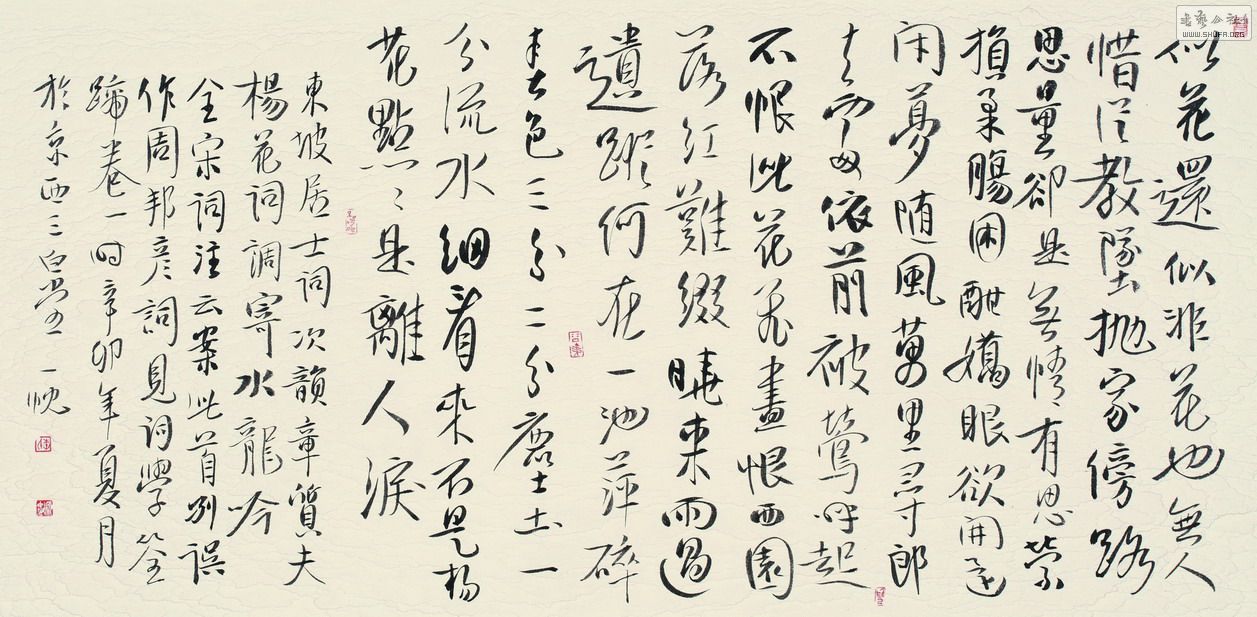 似花還似非花也無人
惜從教墜拋家傍路
思量卻是無情有思縈
損柔腸困酣嬌眼欲開還
閉夢随風萬里尋郎
去處又依前被鶯呼起
不恨此花飛盡恨西園
落紅難綴曉來雨過
遺蹤何在一池萍碎
春色三分二分塵土一
分流水細看來不是楊
花點〻是離人淚
東坡居士詞次韻章質夫
楊花詞調寄水龍吟
全宋詞注云案此首別誤
作周邦彥詞見詞學筌
蹄卷一時辛卯年夏月
於京西三白堂一忱
書藝公社
WWW.SHUFA.ORG